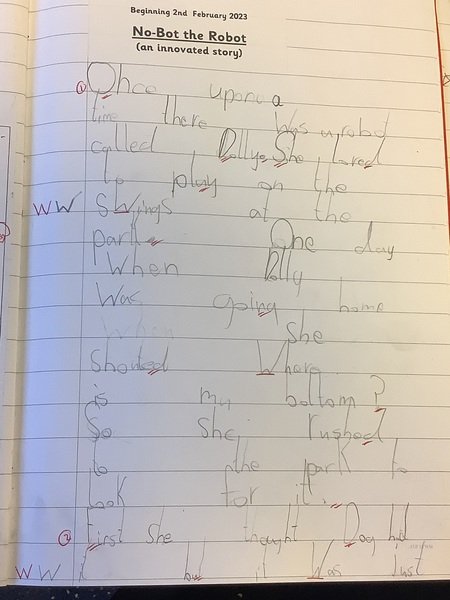 Beginning 2nd February 2023
No-Bot the Robot
(an innovated story)
① Once upon a
time there was a robot
called Dolly. She loved
to play on the
WW swings at the
park. One day
When Dolly
Was going home
When she
Shouted Where
is my bottom?
So she rushed
to the park to
look for it.
② First she thought Dog had
WW it but it Was Just